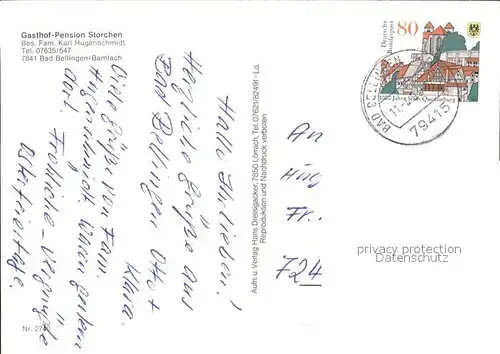 Gasthof-Pension Storchen
Bes. Fam. Karl Hugenschmidt
Tel. 07635/547
7841 Bad Bellingen/Bamlach
Hallo Ihr lieben!
Herzliche Grüße aus
Bad Bellingen Otto +
Klara.
Viele Grüße von Fam.
Hugenschmidt. Waren gestern
dort. Fröhliche - vergnügte
Osterfeiertage.
Nr. 2740
Aufn. u. Verlag Hans Dreisigacker, 7850 Lörrach, Tel. 07621/82491 - Lö.
Reproduktion und Nachdruck verboten.
Deutsche
Bundespost
80
1000 Jahre Stadt Quedlinburg
BAD BELLINGEN
79415
An
Hug
Fr.
724
privacy protection
Datenschutz